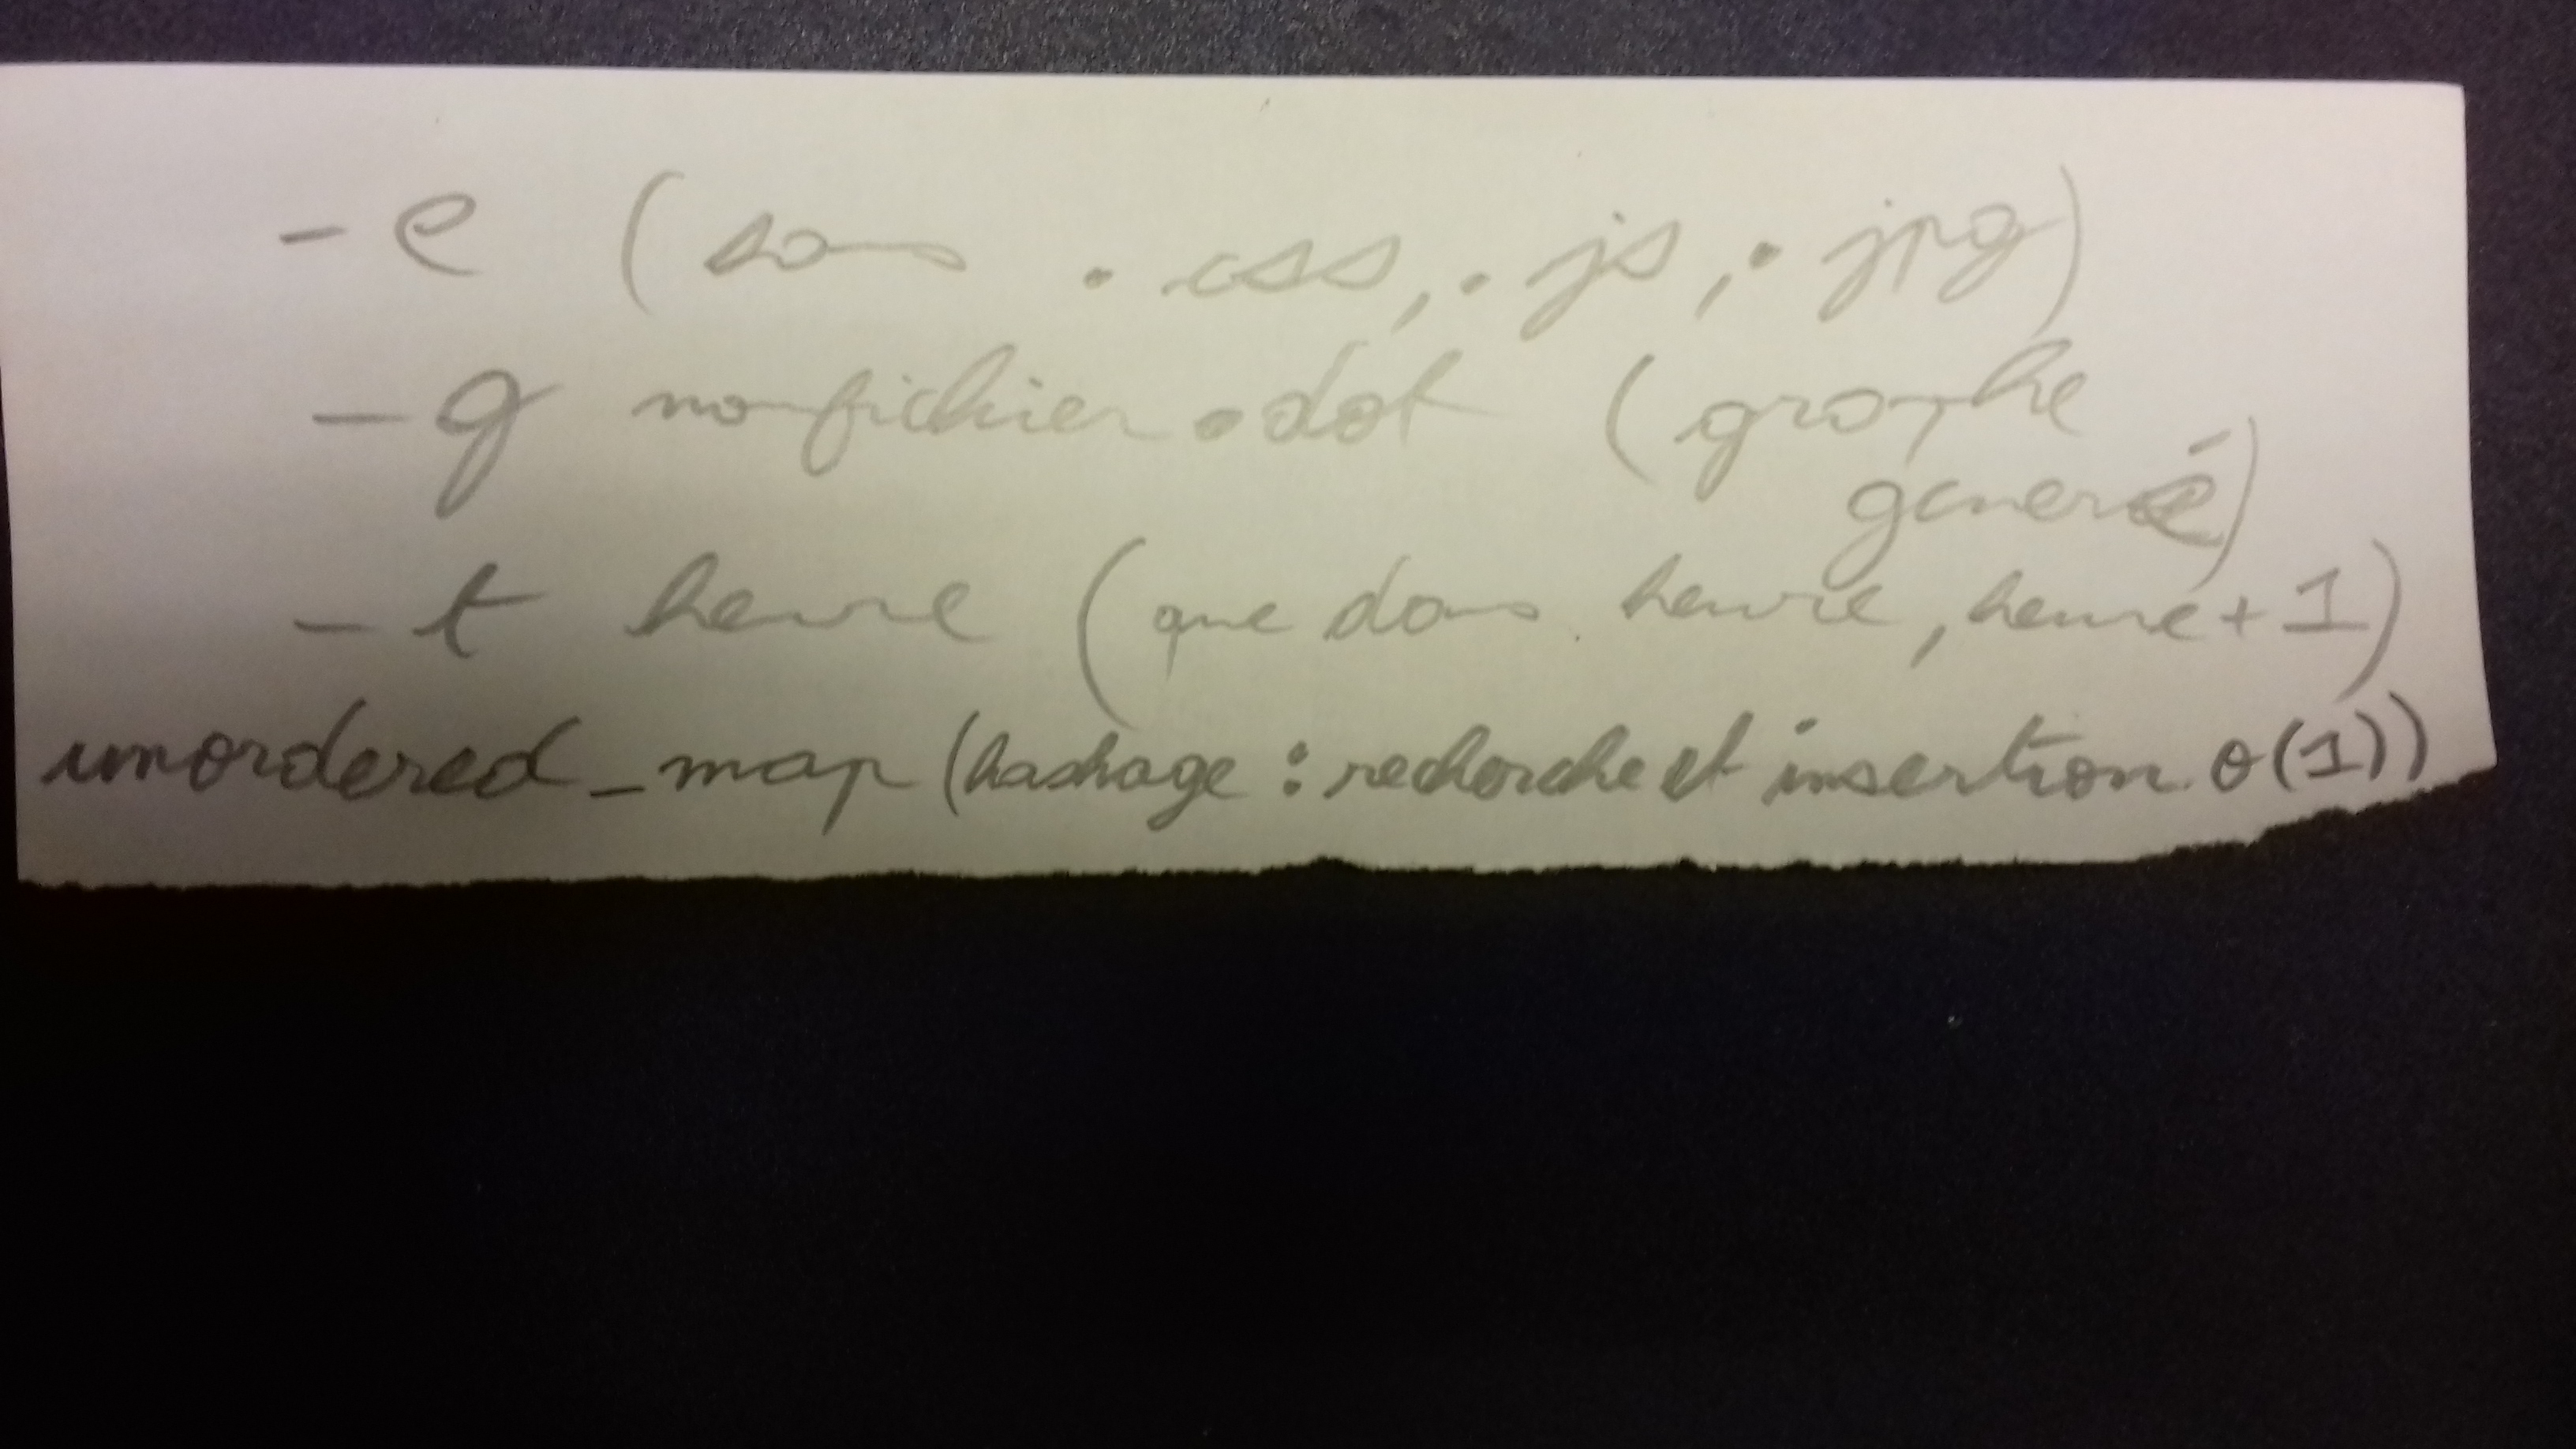 - e (sans .css, .js, .jpg)
- g nomfichier.dot (graphe
généré)
- t heure (que dans heure, heure+1)
unordered_map (hashage : recherche et insertion θ(1))